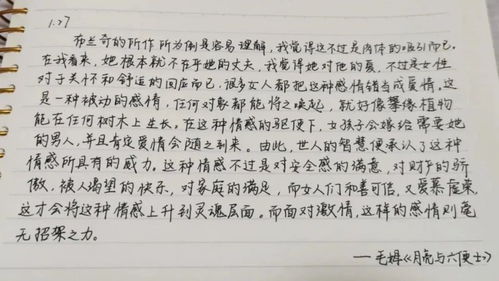 1.27
布兰奇的所作所为倒是容易理解，我觉得这不过是肉体的吸引而已。
在我看来，她根本就不在乎她的丈夫，我觉得她对他的爱，不过是女性
对于关怀和舒适的回应而已，很多女人都把这种感情错当成爱情。这
是一种被动的感情，任何对象都能将之唤起，就好像攀缘植物
能在任何树木上生长。在这种情感的驱使下，女孩子会嫁给需要她
的男人，并且肯定爱情会随之到来。由此，世人的智慧便承认了这种
情感所具有的威力。这种情感不过是对安全感的满意，对财产的骄
傲，被人渴望的快乐，对家庭的满足，而女人们和善可信，又爱慕虚荣，
这才会将这种情感上升到灵魂层面。而面对激情，这样的感情则毫
无招架之力。
——毛姆《月亮与六便士》